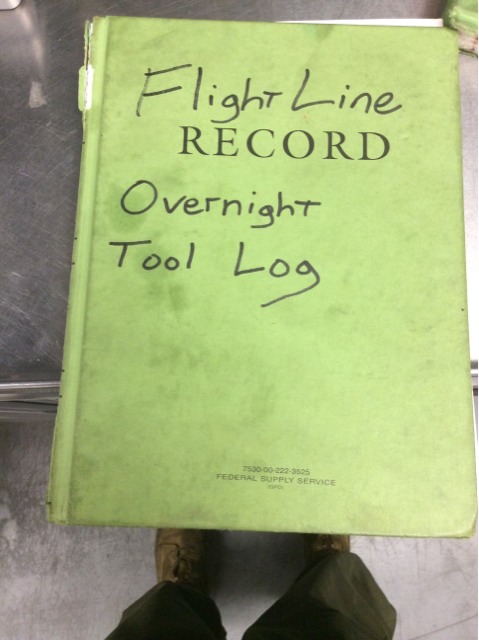 Flight Line
RECORD
Overnight
Tool Log
7530-00-222-3525
FEDERAL SUPPLY SERVICE
(GPO)